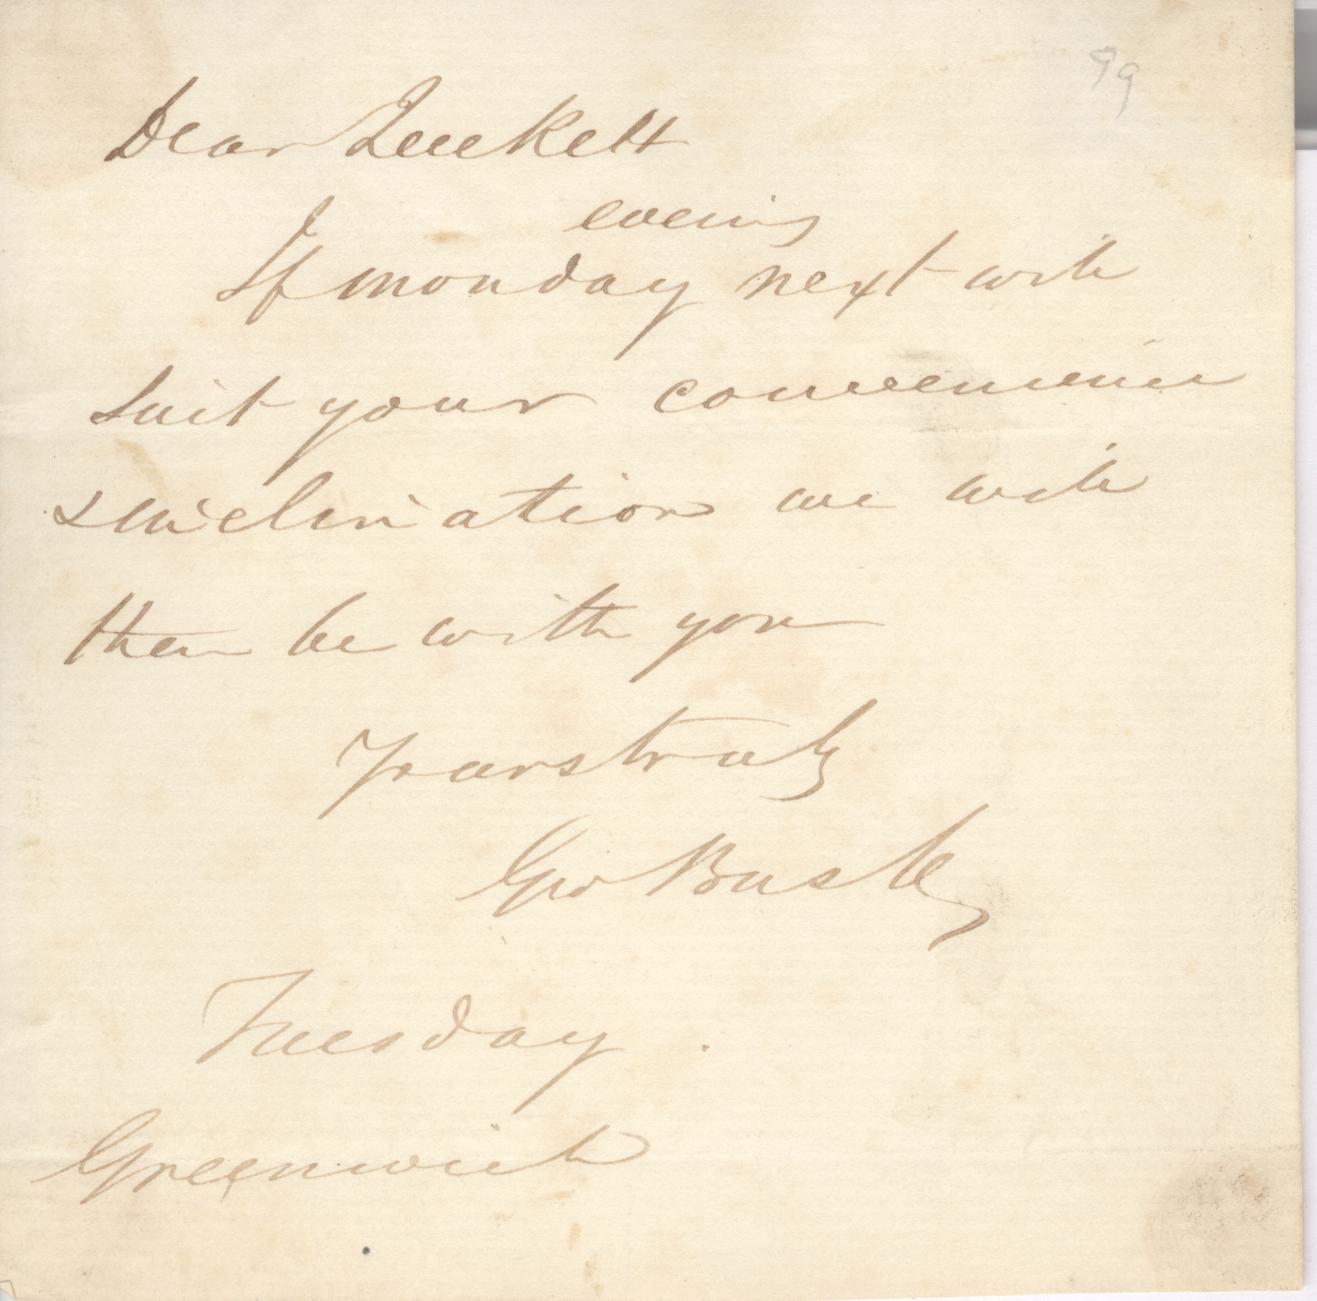 99
Dear Queckett
evening
If monday next will
suit your convenience
& inclination we will
then be with you
Yours truly
Geo Busk
Tuesday
Greenwich